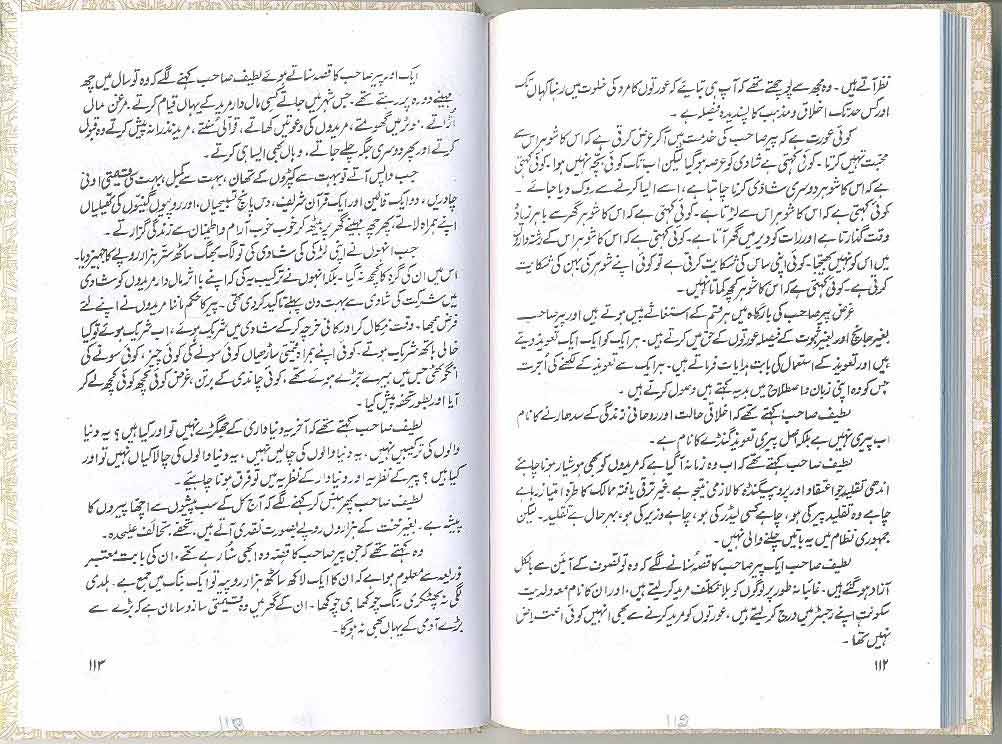 نظر آتے ہیں ۔ وہ مجھ سے پوچھتے تھے کہ آپ ہی بتایئے کہ عورتوں کا مرد کی خلوت میں رہنا کہاں تک
اور کس حد تک اخلاق و مذہب کا پسندیدہ فیصلہ ہے ۔
کوئی عورت ہے کہ پیر صاحب کی خدمت میں آکر عرض کرتی ہے کہ اس کا شوہر اس سے
محبت نہیں کرتا ۔ کوئی کہتی ہے شادی کو عرصہ ہو گیا لیکن اب تک کوئی بچہ نہیں ہوا ۔ کوئی کہتی
ہے کہ اس کا شوہر دوسری شادی کرنا چاہتا ہے ، اسے ایسا کرنے سے روک دیا جائے ۔
کوئی کہتی ہے کہ اس کا شوہر اس سے لڑتا ہے ۔ کوئی کہتی ہے کہ اس کا شوہر گھر سے باہر زیادہ
وقت گذارتا ہے اور رات کو دیر میں گھر آتا ہے ۔ کوئی کہتی ہے کہ اس کا شوہر اس کے رشتہ داروں
میں اس کو نہیں بھیجتا ۔ کوئی اپنی ساس کی شکایت کرتی ہے تو کوئی اپنے شوہر کی بہن کی شکایت
کرتی ہے ۔ کوئی کہتی ہے کہ اس کا شوہر کچھ کماتا نہیں ۔
غرض پیر صاحب کی بارگاہ میں ہر قسم کے استغاثے پیش ہوتے ہیں اور پیر صاحب
بغیر جانچ اور بغیر ثبوت کے فیصلہ عورتوں کے حق میں کرتے ہیں ۔ ہر ایک کو ایک ایک تعویذ دیتے
ہیں اور تعویذ کے استعمال کی بابت ہدایات فرماتے ہیں ۔ ہر ایک سے تعویذ کے لکھنے کی اجرت
جس کو وہ اپنی زبان و اصطلاح میں ہدیہ کہتے ہیں وصول کرتے ہیں ۔
لطیف صاحب کہتے تھے کہ اخلاقی حالت اور روحانی زندگی کے سدھارنے کا نام
اب پیری نہیں ہے بلکہ اصل پیری تعویذ گنڈے کا نام ہے ۔
لطیف صاحب کہتے تھے کہ اب وہ زمانہ آگیا ہے کہ مریدوں کو بھی ہوشیار ہونا چاہئے
اندھی تقلید جو اعتقاد اور پروپیگنڈہ کا لازمی نتیجہ ہے ۔ غیر ترقی یافتہ ممالک کا طرۂ امتیاز رہا ہے
چاہے وہ تقلید پیر کی ہو ، چاہے کسی لیڈر کی ہو ، چاہے وزیر کی ہو ، بہرحال ہے تقلید ۔ لیکن
جمہوری نظام میں یہ باتیں چلنے والی نہیں ۔
لطیف صاحب ایک پیر صاحب کا قصہ سنانے لگے کہ وہ تو تصوف کے آئین سے بالکل
آزاد ہو گئے ہیں ۔ غائبانہ طور پر لوگوں کو بلا تکلف مرید کر لیتے ہیں ، اور ان کا نام معہ ولدیت
سکونت اپنے رجسٹر میں درج کر لیتے ہیں ، عورتوں کو مرید کرنے سے بھی انہیں کوئی اعتراض
نہیں تھا ۔
۱۱۲
ایک اور پیر صاحب کا قصہ سناتے ہوئے لطیف صاحب کہنے لگے کہ وہ تو سال میں چھ
مہینے دورہ پر رہتے تھے ۔ جس شہر میں جاتے کسی مال دار مرید کے یہاں قیام کرتے . مرغن مال
اڑاتے ، موٹر میں گھومتے ، مریدوں کی دعوتیں کھاتے ، قوالی سنتے ، مرید نذرانہ پیش کرتے وہ قبول
کرتے اور پھر دوسری جگہ چلے جاتے ، وہاں بھی ایسا ہی کرتے ۔
جب واپس آتے تو بہت سے کپڑوں کے تھان ، بہت سے کمبل ، بہت سی قیمتی اونی
چادریں ، دو ایک قالین اور ایک قرآن شریف ، دس پانچ تسبیحیاں ، اور روپوں گنیوں کی تھیلیاں
اپنے ہمراہ لاتے ، پھر چھ مہینے گھر پر بیٹھ کر خوب خوب آرام و اطمینان سے زندگی گزارتے ۔
جب انہوں نے اپنی لڑکی کی شادی کی تو لگ بھگ ساٹھ ستر ہزار روپے کا جہیز دیا ۔
اس میں ان کی گرہ کا کچھ نہ گیا ۔ بلکہ انہوں نے ترکیب یہ کی کہ اپنے با اثر مال دار مریدوں کو شادی
میں شرکت کی شادی سے بہت دن پہلے تاکید کر دی تھی ۔ پیر کا حکم ماننا مریدوں نے اپنے لئے
فرض سمجھا ۔ وقت نکال کر اور کافی خرچہ کر کے شادی میں شریک ہوئے ، اب شریک ہوئے تو کیا
خالی ہاتھ شریک ہوتے ۔ کوئی اپنے ہمراہ قیمتی ساڑھیاں کوئی سونے کی کوئی چیز ، کوئی سونے کی
انگوٹھی جس میں ہیرے جڑے ہوئے تھے ، کوئی چاندی کے برتن ، غرض کوئی کچھ کوئی کچھ لے کر
آیا اور بطور تحفہ پیش کیا ۔
لطیف صاحب کہتے تھے کہ آخر یہ دنیا داری کے جھگڑے نہیں تو اور کیا ہیں ؟ یہ دنیا
والوں کی ترکیبیں نہیں ، یہ دنیا والوں کی چالیں نہیں ، یہ دنیا والوں کی چالاکیاں نہیں تو اور
کیا ہیں ؟ پیر کے نظریہ اور دنیا دار کے نظریہ میں تو فرق ہونا چاہئے ۔
لطیف صاحب پھر ہنس کر کہنے لگے کہ آج کل کے سب پیشوں سے اچھا پیروں کا
پیشہ ہے ۔ بغیر محنت کے ہزاروں روپے بصورت نقدی آتے ہیں ، تحفہ تحائف علیحدہ ۔
وہ کہتے تھے کہ جن پیر صاحب کا قصہ وہ ابھی سنا رہے تھے ، ان کی بابت معتبر
ذرائع سے معلوم ہوا ہے کہ ان کا ایک لاکھ ساٹھ ہزار روپیہ تو ایک بنک میں جمع ہے ۔ ہلدی
لگی نہ پھٹکری رنگ چوکھا ہی چوکھا ۔ ان کے گھر میں وہ قیمتی ساز و سامان ہے کہ بڑے سے
بڑے آدمی کے یہاں بھی نہ ہوگا ۔
۱۱۳